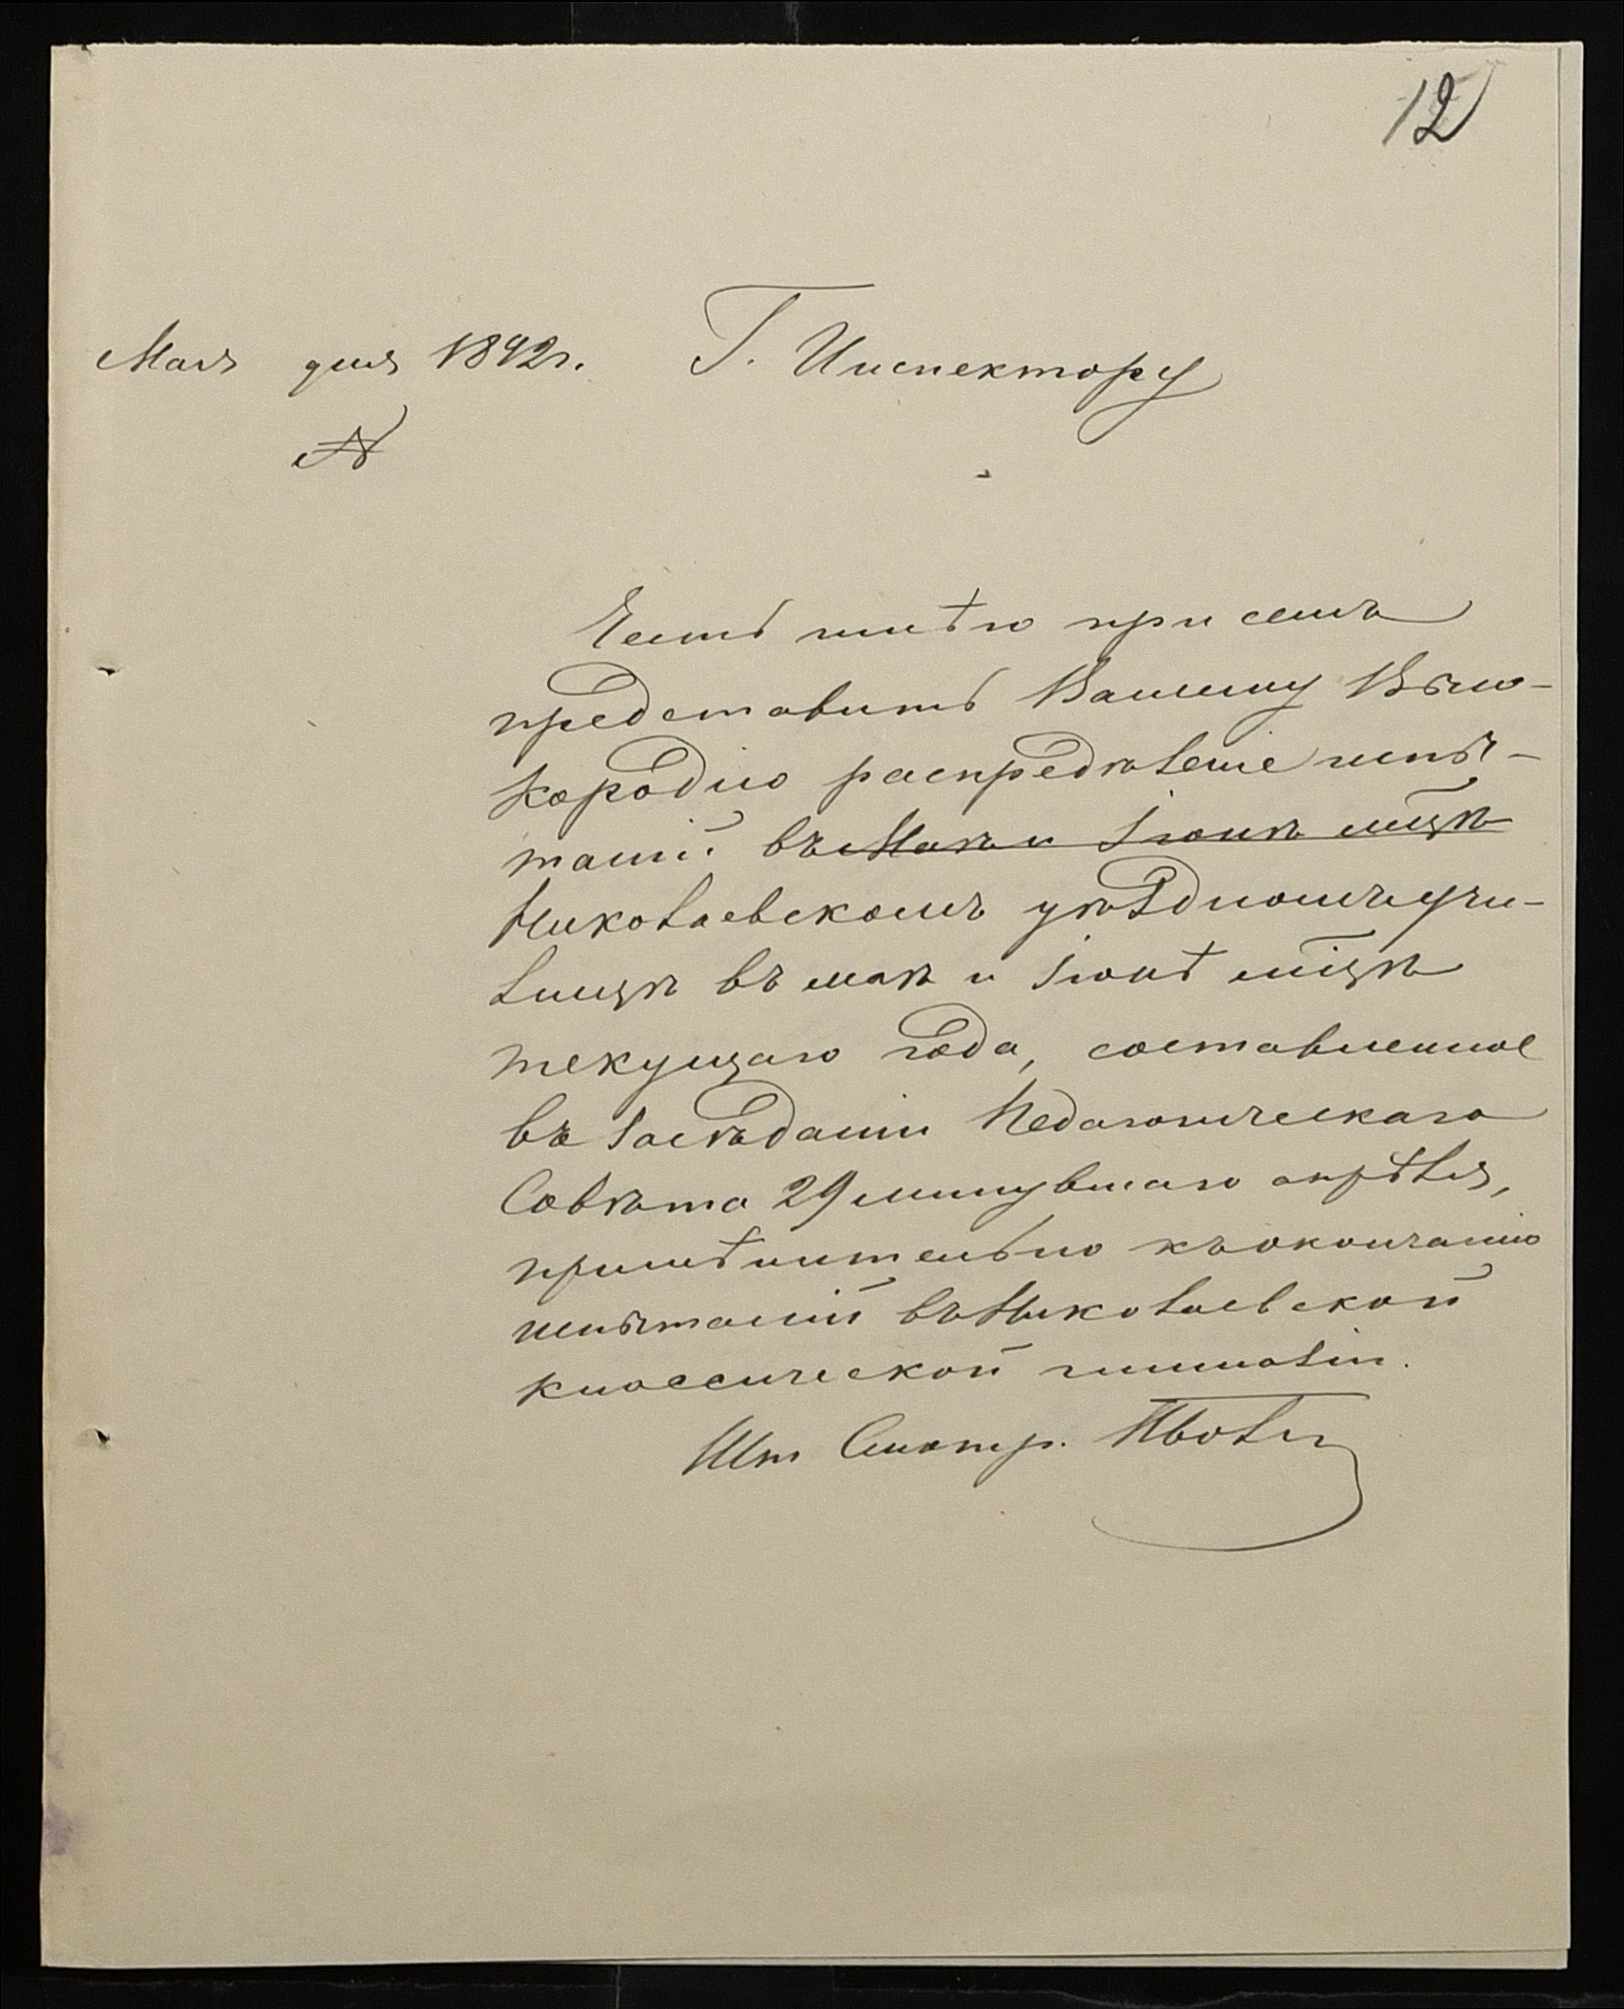 12
Мая дня 1892 г. Г. Инспектору
№
Честь имѣю при семъ
представить Вашему Высо-
кородiю распредѣленiе испы-
танiй въ Маѣ и Iюнѣ мцѣ
Николаевскомъ уѣздномъ учи-
лищѣ въ маѣ и Iюнѣ мцѣ
текущаго года, составленное
въ засѣданiи Педагогическаго
Совѣта 29 минувшаго апрѣля,
примѣнительно къ окончанiю
испытанiй въ Николаевской
классической гимназiи.
Шт Смотр.